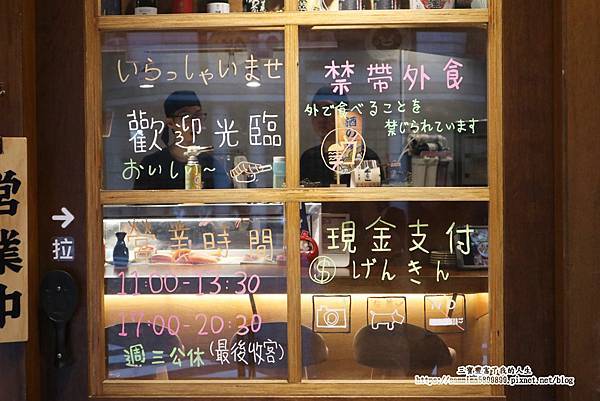 いらっしゃいませ
歡迎光臨
おいしい~
禁帶外食
外で食べることを
禁じられています
酒の
營業時間
11:00-13:30
17:00-20:30
週三公休(最後收客)
現金支付
$げんきん
NO
營業中
拉
三寶媽審丁我的人生